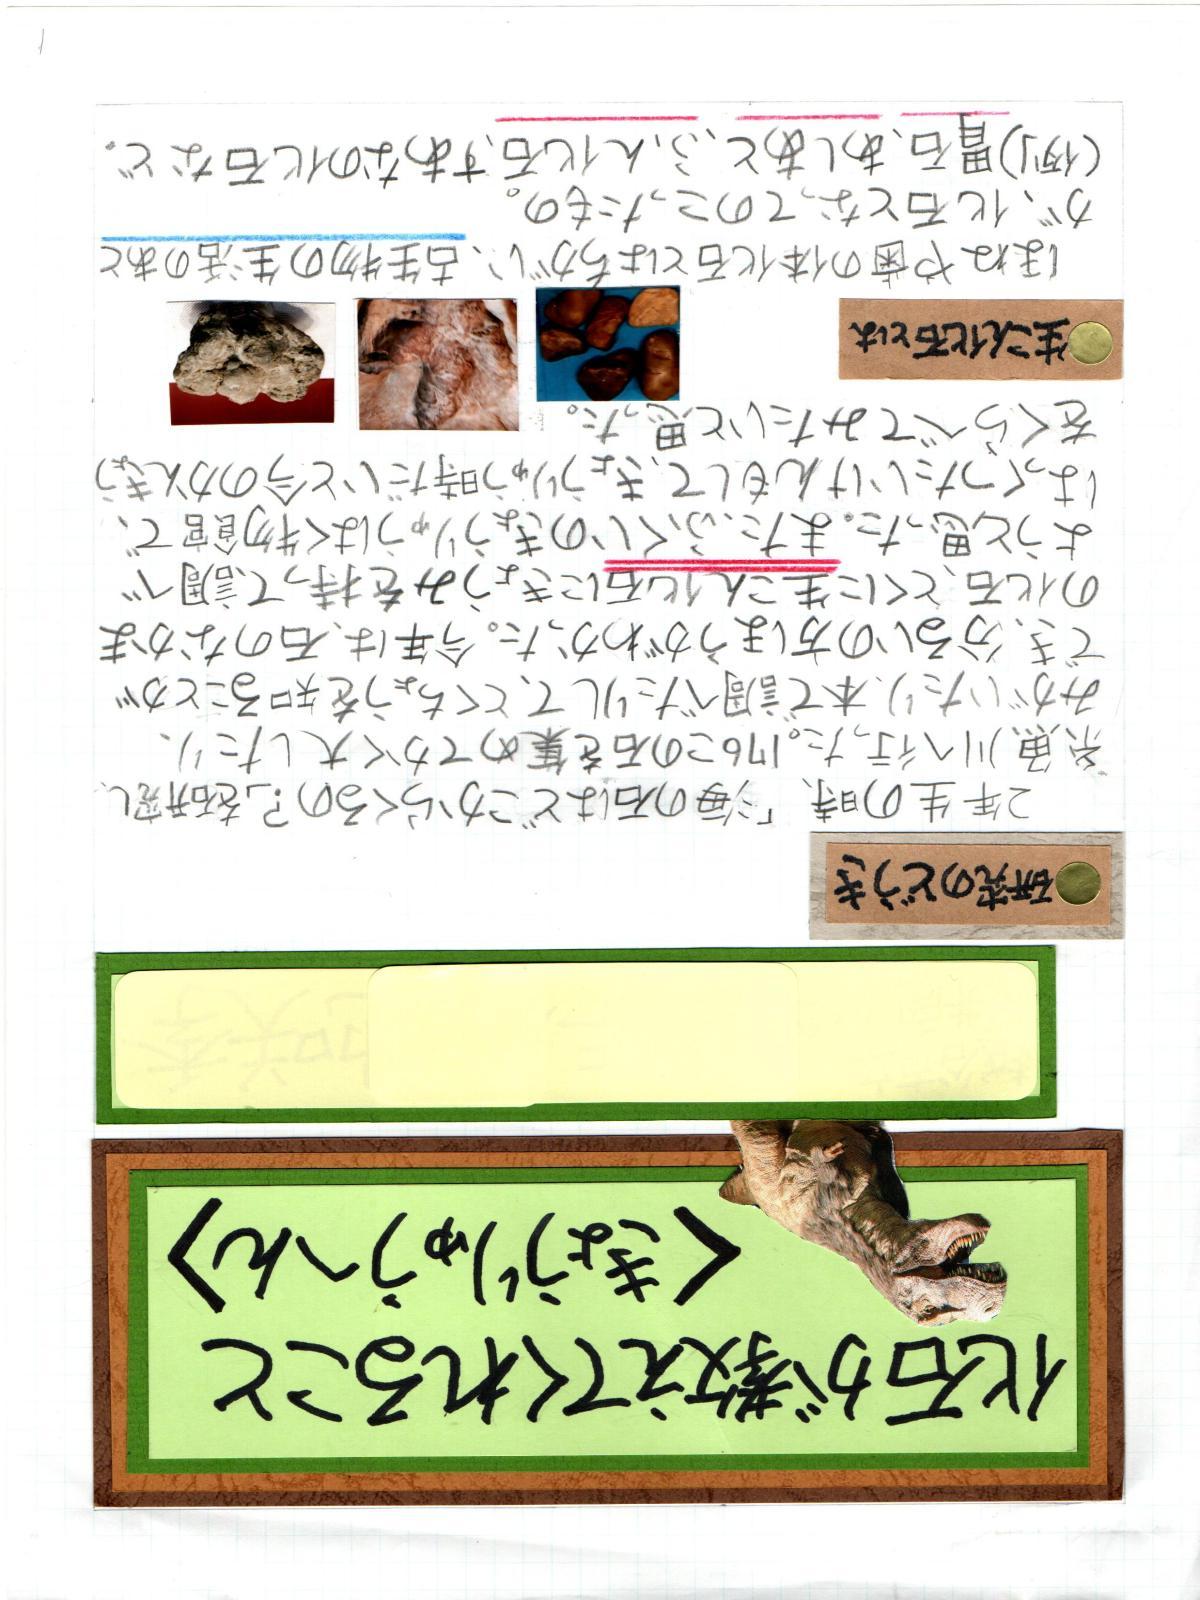 化石が教えてくれること
＜きょうりゅうへん＞
研究のどうき
2年生の時、「海の石はどこからくるの?」を研究し、
糸魚川へ行った。176この石を集めてかく大したり、
みがいたり、本で調べたりして、とくちょうを知ることが
でき、分るいの方ほうがわかった。今年は、石のなかま
の化石、とくに生こん化石にきょうみを持って調べ
ようと思った。また、ふくいのきょうりゅうはく物館で、
はっくつたいけんをして、きょうりゅう時だいと今のかんきょう
をくらべてみたいと思った。
生こん化石とは
ほねや歯の体化石とはちがい、古生物の生活のあと
が、化石となってのこったもの。
(例)胃石、あしあと、ふん化石、すあなの化石など。
1